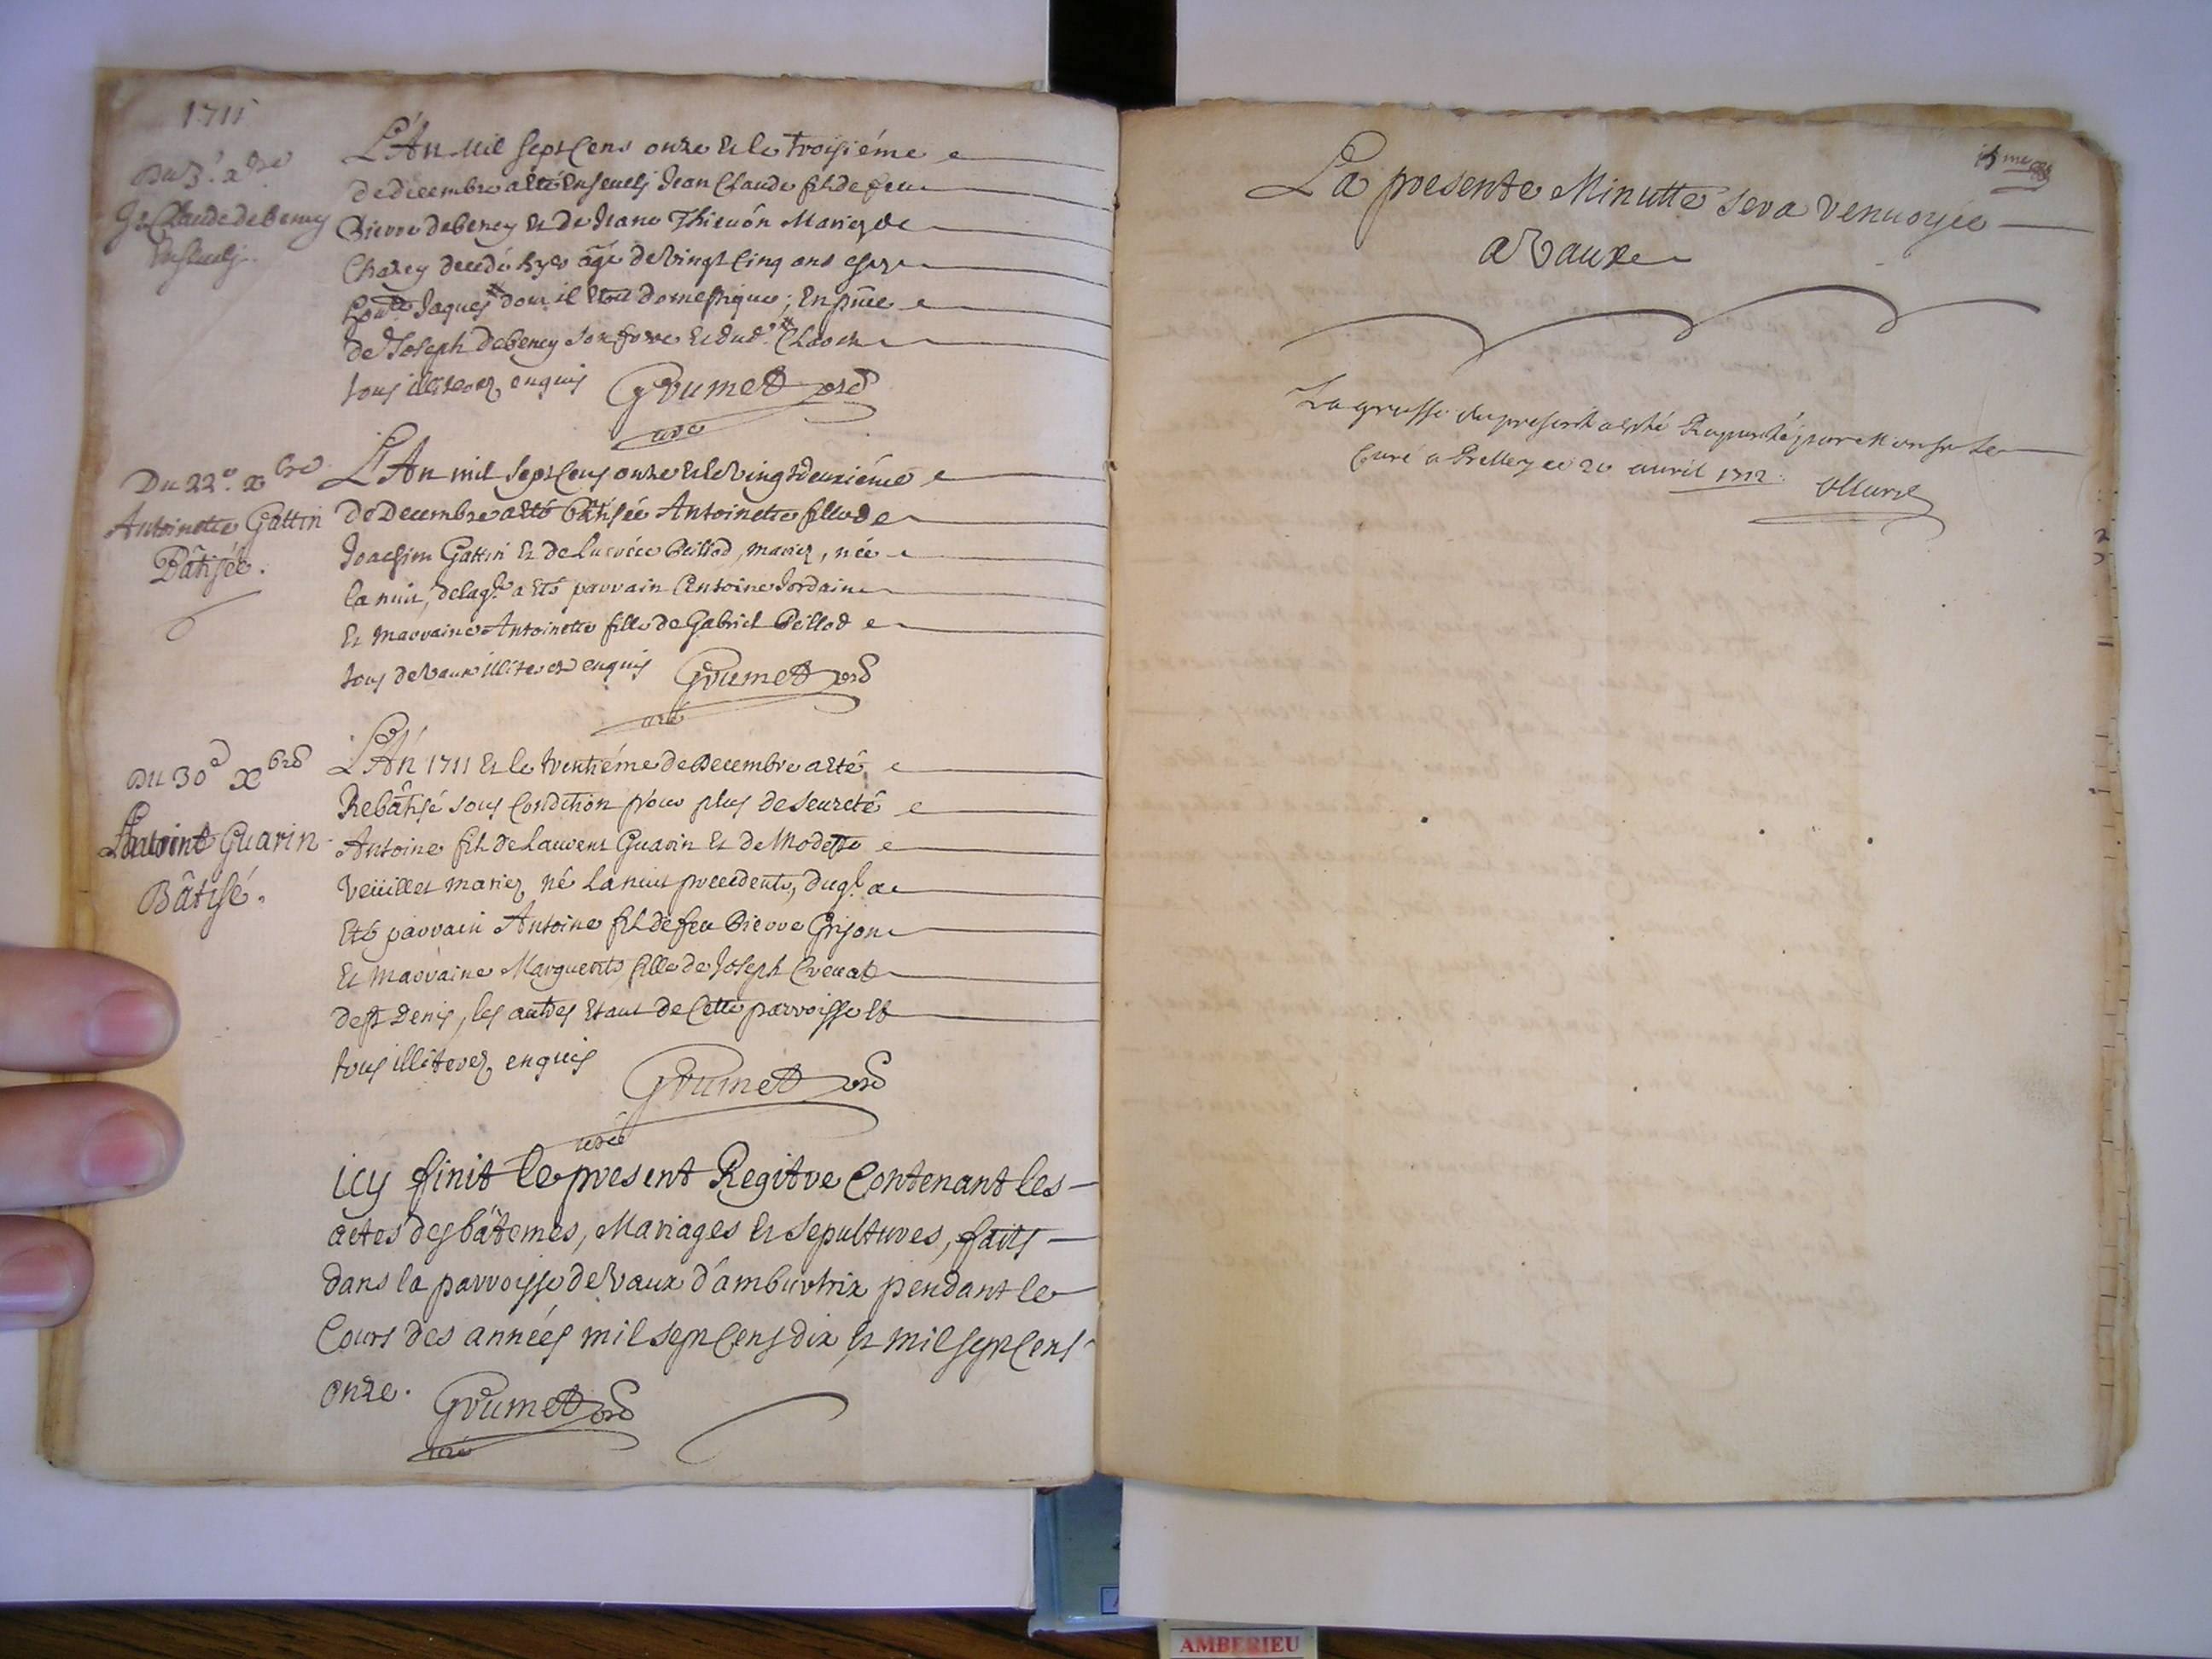 1711
Du 3.e xbre
Jn Claude debeney
Ensevelj.
L'An Mil Sept Cens onze Et le troisiéme
de Decembre a été Ensevelj Jean Claude fils de feu
Pierre debeney Et de Jeane Thievón Mariez de
decedé hyer âgé de Vingt Cinq ans chez
Jaques dont il Etoit domestique; En pñce
de Joseph debeney son frere Et dud.
tous illiterez enquis Grumet pre
curé
Du 22.e xbre
Antoinette Gattin
Bâtisée.
L'An mil Sept Cens onze Et le Vingt deuxiéme
de Decembre a été bâtisée Antoinette fille de
Joachim Gattin Et de Lucréce Peillod, mariez, née
la nuit, de laqle a Eté parrain Antoine Jordain
Et marraine Antoinette fille de Gabriel Peillod
tous de Vaux illiterez enquis Grumet pre
curé
Du 30e xbre
Antoine Guarin
Bâtisé.
L'An 1711 Et le trentiéme de Decembre a eté
Rebâtisé sous Condition pour plus de seureté
Antoine fils de Laurent Guarin Et de Modeste
Veüillet mariez né La nuit precedente, duql a
Eté parrain Antoine fils de feu Pierre Grison
Et marraine Marguerite fille de Joseph Crevat
de St Denis, les autres Etant de Cette parroisse Et
tous illiterez enquis
Grumet pre
curé
icy finit le present Regitre Contenant les
actes des bâtemes, Mariages Et Sepultures, faits
dans la parroisse de Vaux d'ambutrix pendant le
Cours des années mil sept Cens dix Et mil sept Cens
onze. Grumet pre
curé
La presente Minutte sera renvoyée
a Vaux
La grosse du present a esté Raportée par Monsr le
Curé a Belley ce 20 avril 1712.